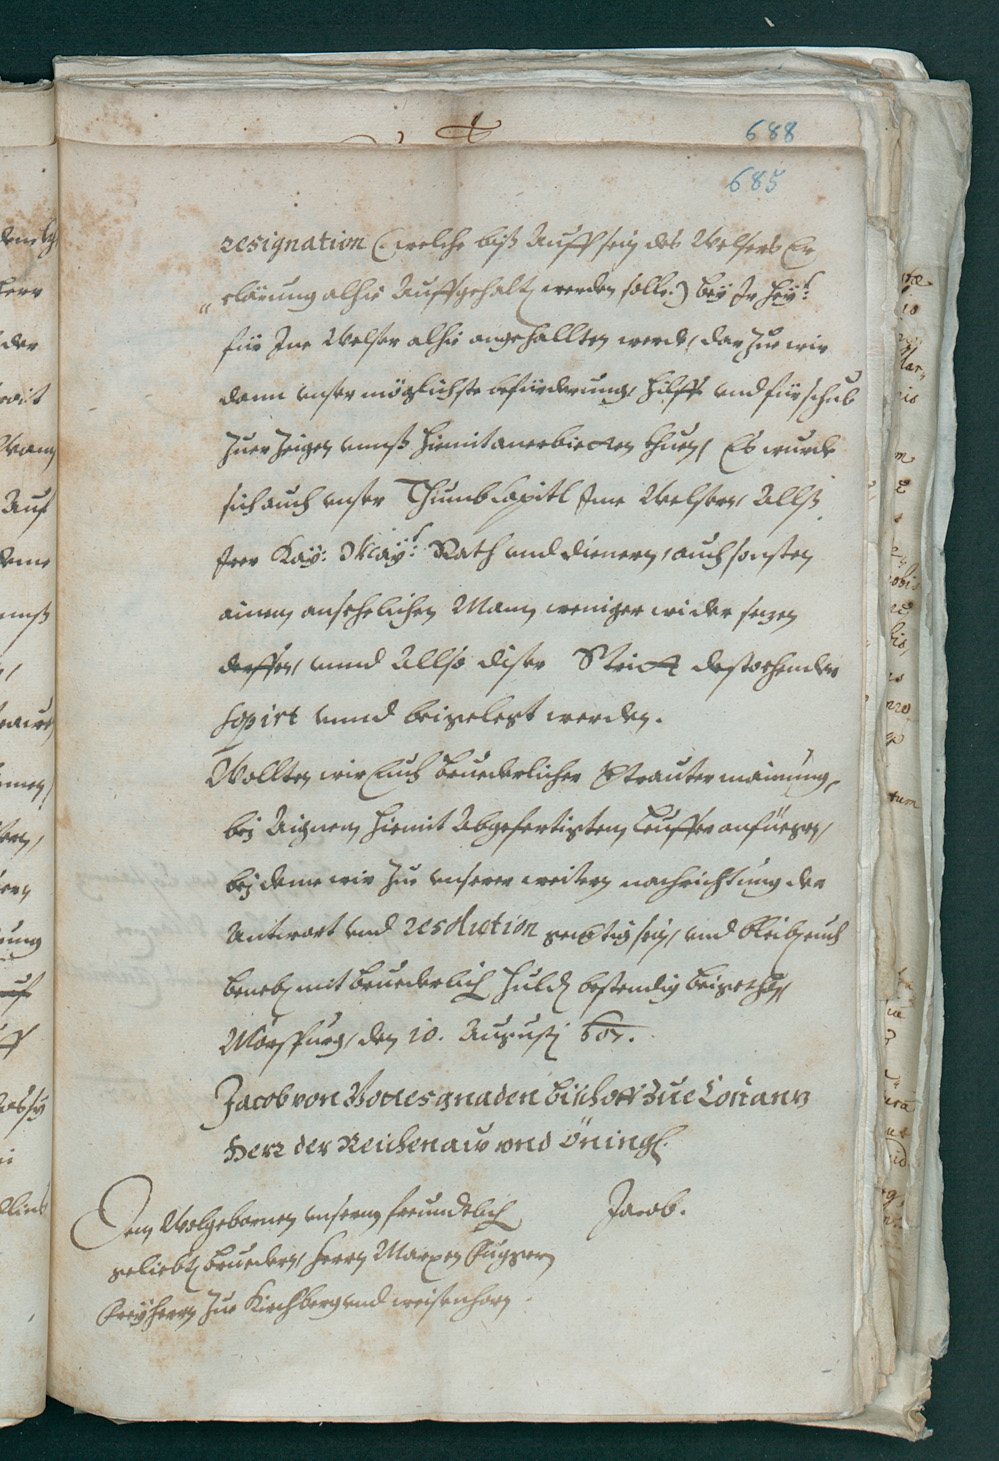 688
685
resignation (: welche biß Auff sein des Welsers Er
clärung alhie Auffgehalten werden solle:) bey Ir Hey:t
für Ine Welser alhie angehallten werde, darzue wir
dann unser möglichste befürderung, hilff und fürschub
Zuer Zeigen unnß hiemit anerbietten thuen, Es wurde
sich auch unser Thumb Capitl Ime Welsern, Allß
Irer Kay: May:t Rath und dienern, auch sonsten
ainem ansehelichen Mann weniger wider sezen
derffen, unnd Allso diser Stritt desto ehender
sopirt unnd beigelegt werden.
Wollten wir Euch bruederlicher vertrauter mainung,
bey Aignem hiemit Abgefertigtem Leuffer anfüegen,
bey deme wir Zue unserer weitern nachrichtung der
Antwort und resolution gewertig sein, und bleiben euch
beneben mit bruederlich hulden bestendig beigethan,
Mörspurg, den 10. Augusti 607.
Jacob von Gottes gnaden Bischoff Zue Costanz
Herr der Reichenaw vnd Öningen.
Jacob.
Dem Wolgebornen unserm freundtlich
geliebten bruedern, Herrn Marxen Fugger
Freyherrn Zue Kirchberg und weisenhorn